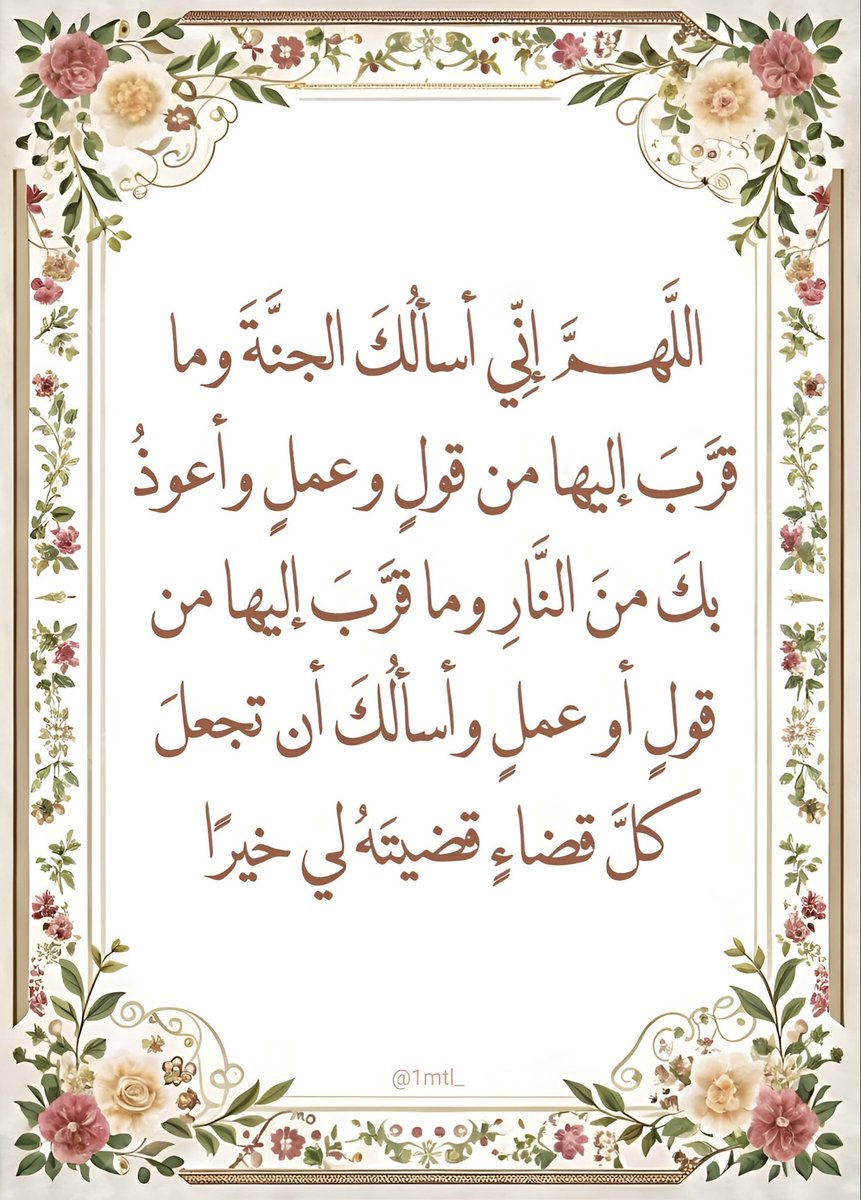 اللَّهـــمَّ إنِّي أسألُكَ الجنَّةَ وما
قرَّبَ إليها من قولٍ وعملٍ وأعوذُ
بكَ منَ النَّارِ وما قرَّبَ إليها من
قولٍ أو عملٍ وأسألُكَ أن تجعلَ
كلَّ قضاءٍ قضيتَهُ لي خيرًا
@1mtl_